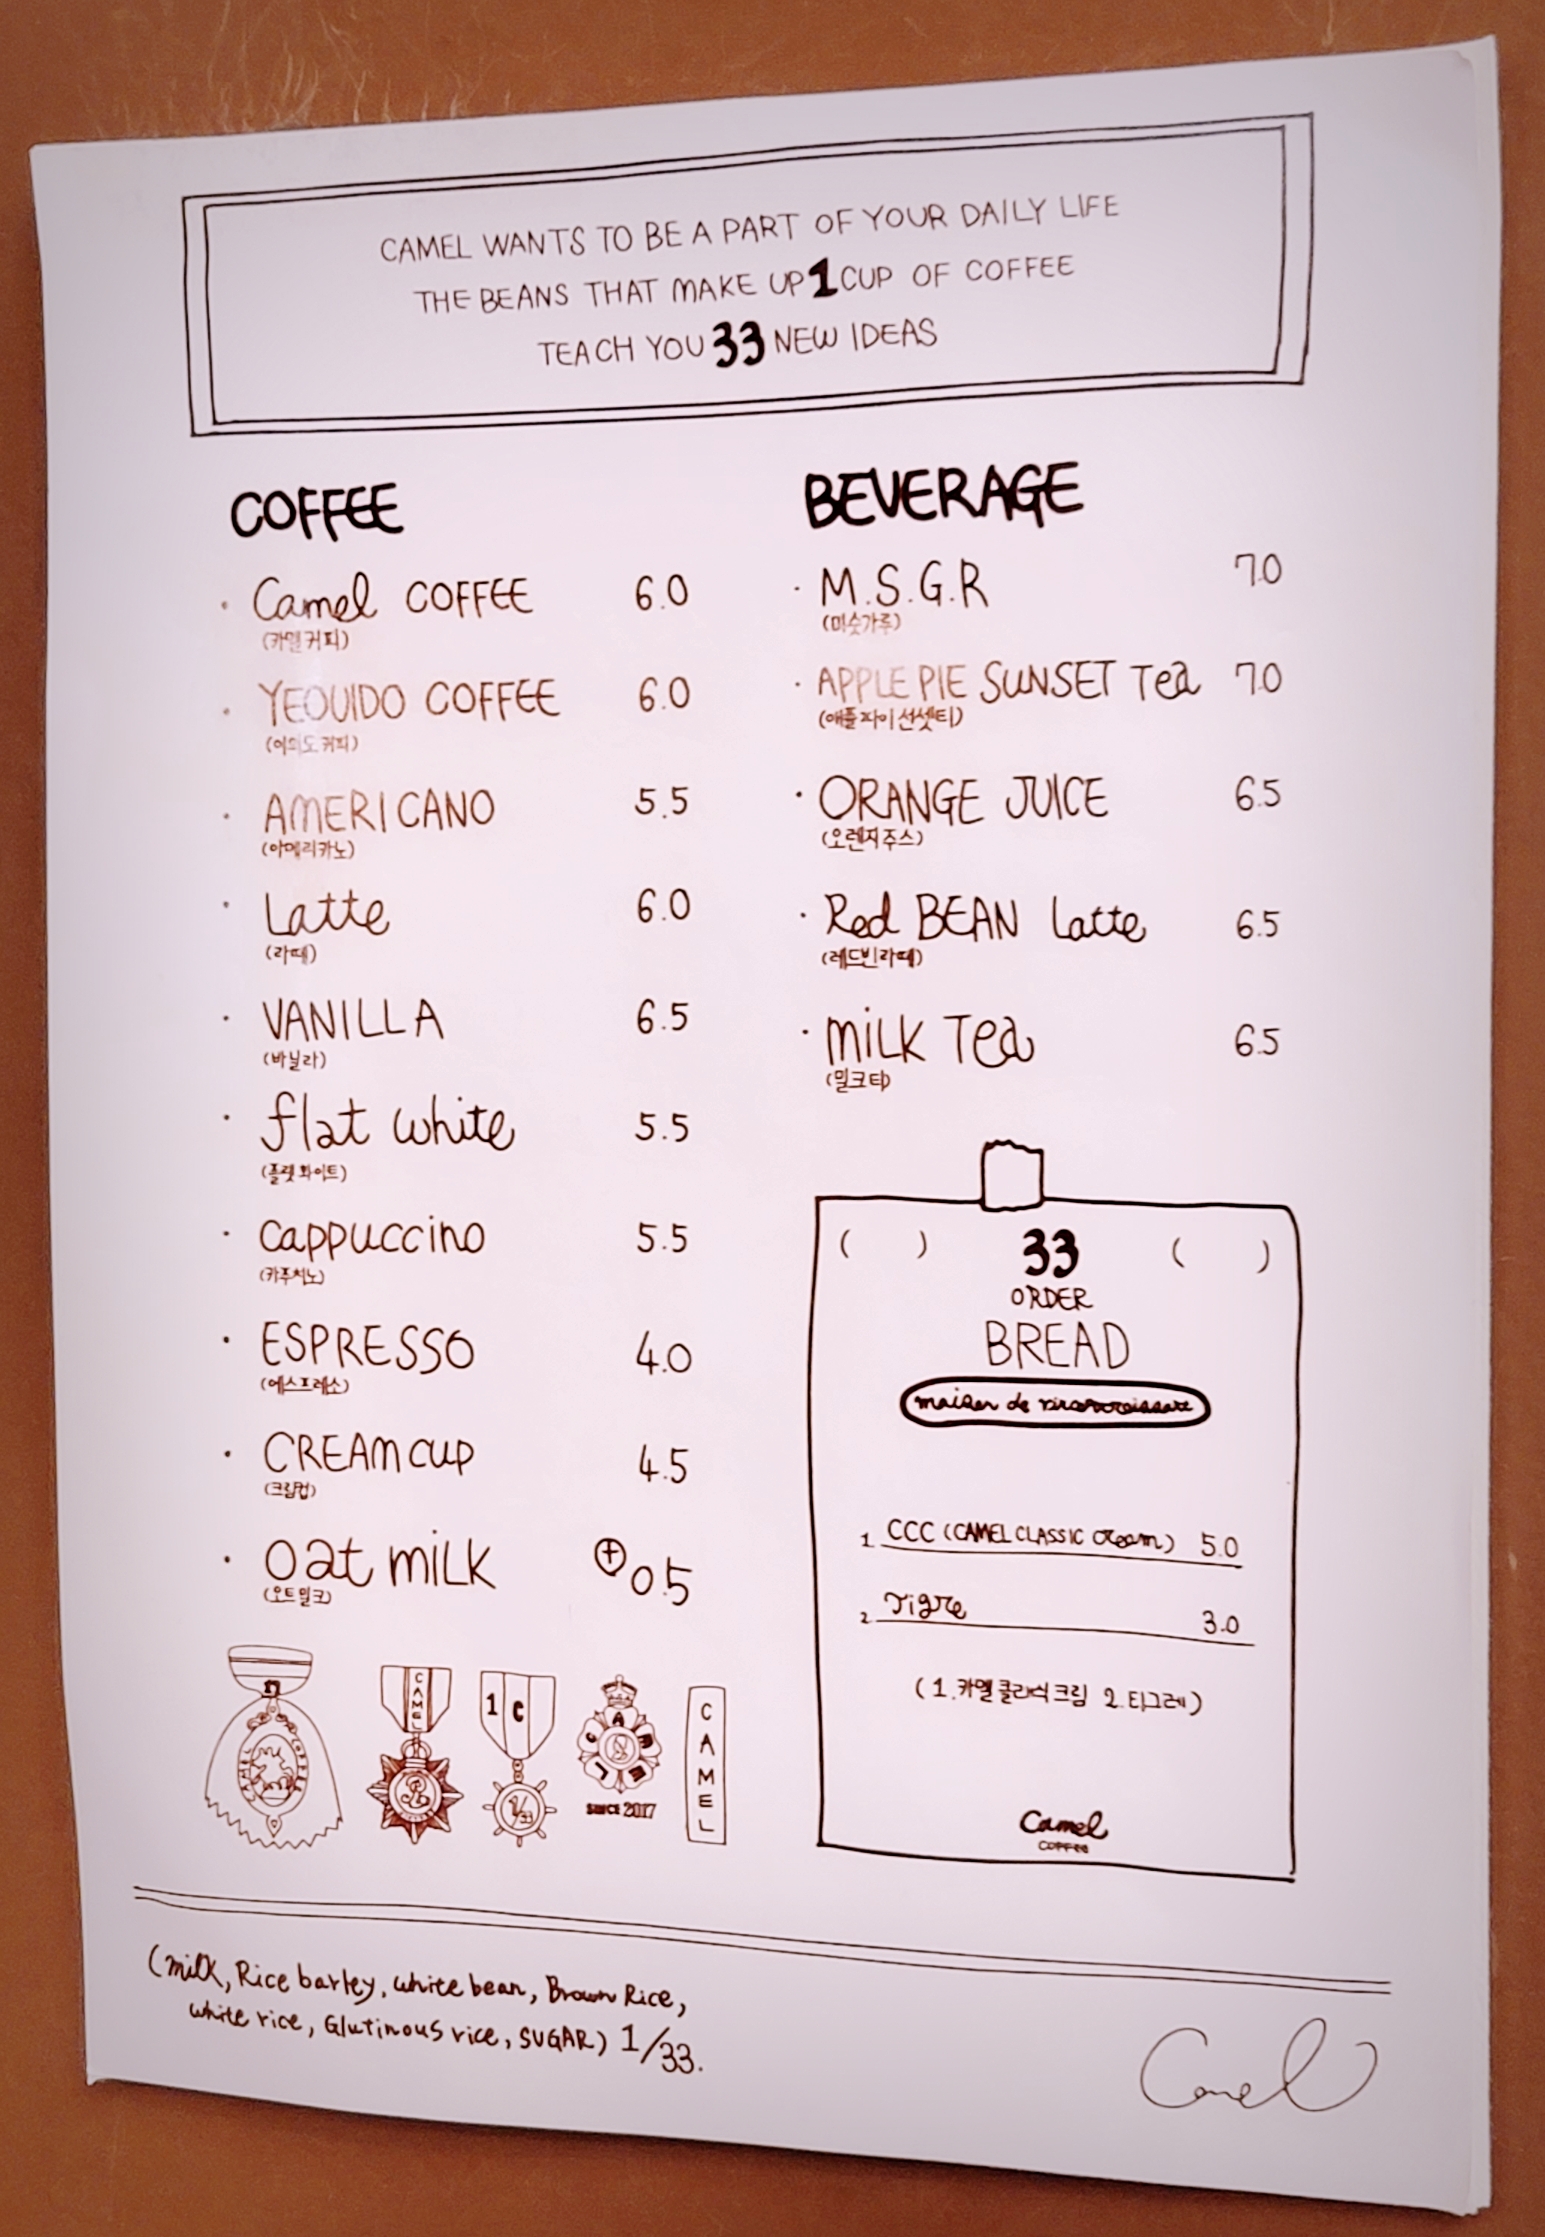 CAMEL WANTS TO BE A PART OF YOUR DAILY LIFE
THE BEANS THAT MAKE UP 1 CUP OF COFFEE
TEACH YOU 33 NEW IDEAS
COFFEE
· Camel COFFEE 6.0
(카멜커피)
· YEOUIDO COFFEE 6.0
(여의도커피)
· AMERICANO 5.5
(아메리카노)
· Latte 6.0
(라떼)
· VANILLA 6.5
(바닐라)
· flat white 5.5
(플랫화이트)
· cappuccino 5.5
(카푸치노)
· ESPRESSO 4.0
(에스프레소)
· CREAM CUP 4.5
(크림컵)
· Oat MiLK ⊕ 0.5
(오트밀크)
BEVERAGE
· M.S.G.R 7.0
(미숫가루)
· APPLE PIE SUNSET Tea 7.0
(애플파이선셋티)
· ORANGE JUICE 6.5
(오렌지주스)
· Red BEAN Latte 6.5
(레드빈라떼)
· MiLK Tea 6.5
(밀크티)
( ) 33 ( )
ORDER
BREAD
maison de
1. CCC (CAMEL CLASSIC cream) 5.0
2. Tigre 3.0
(1.카멜클래식크림 2.티그레)
Camel
COFFEE
CAMEL COFFEE
CAMEL
1 C
1/33
CAMEL
SINCE 2017
CAMEL
(milk, Rice barley, white bean, Brown Rice,
white rice, Glutinous rice, SUGAR) 1/33.
Camel